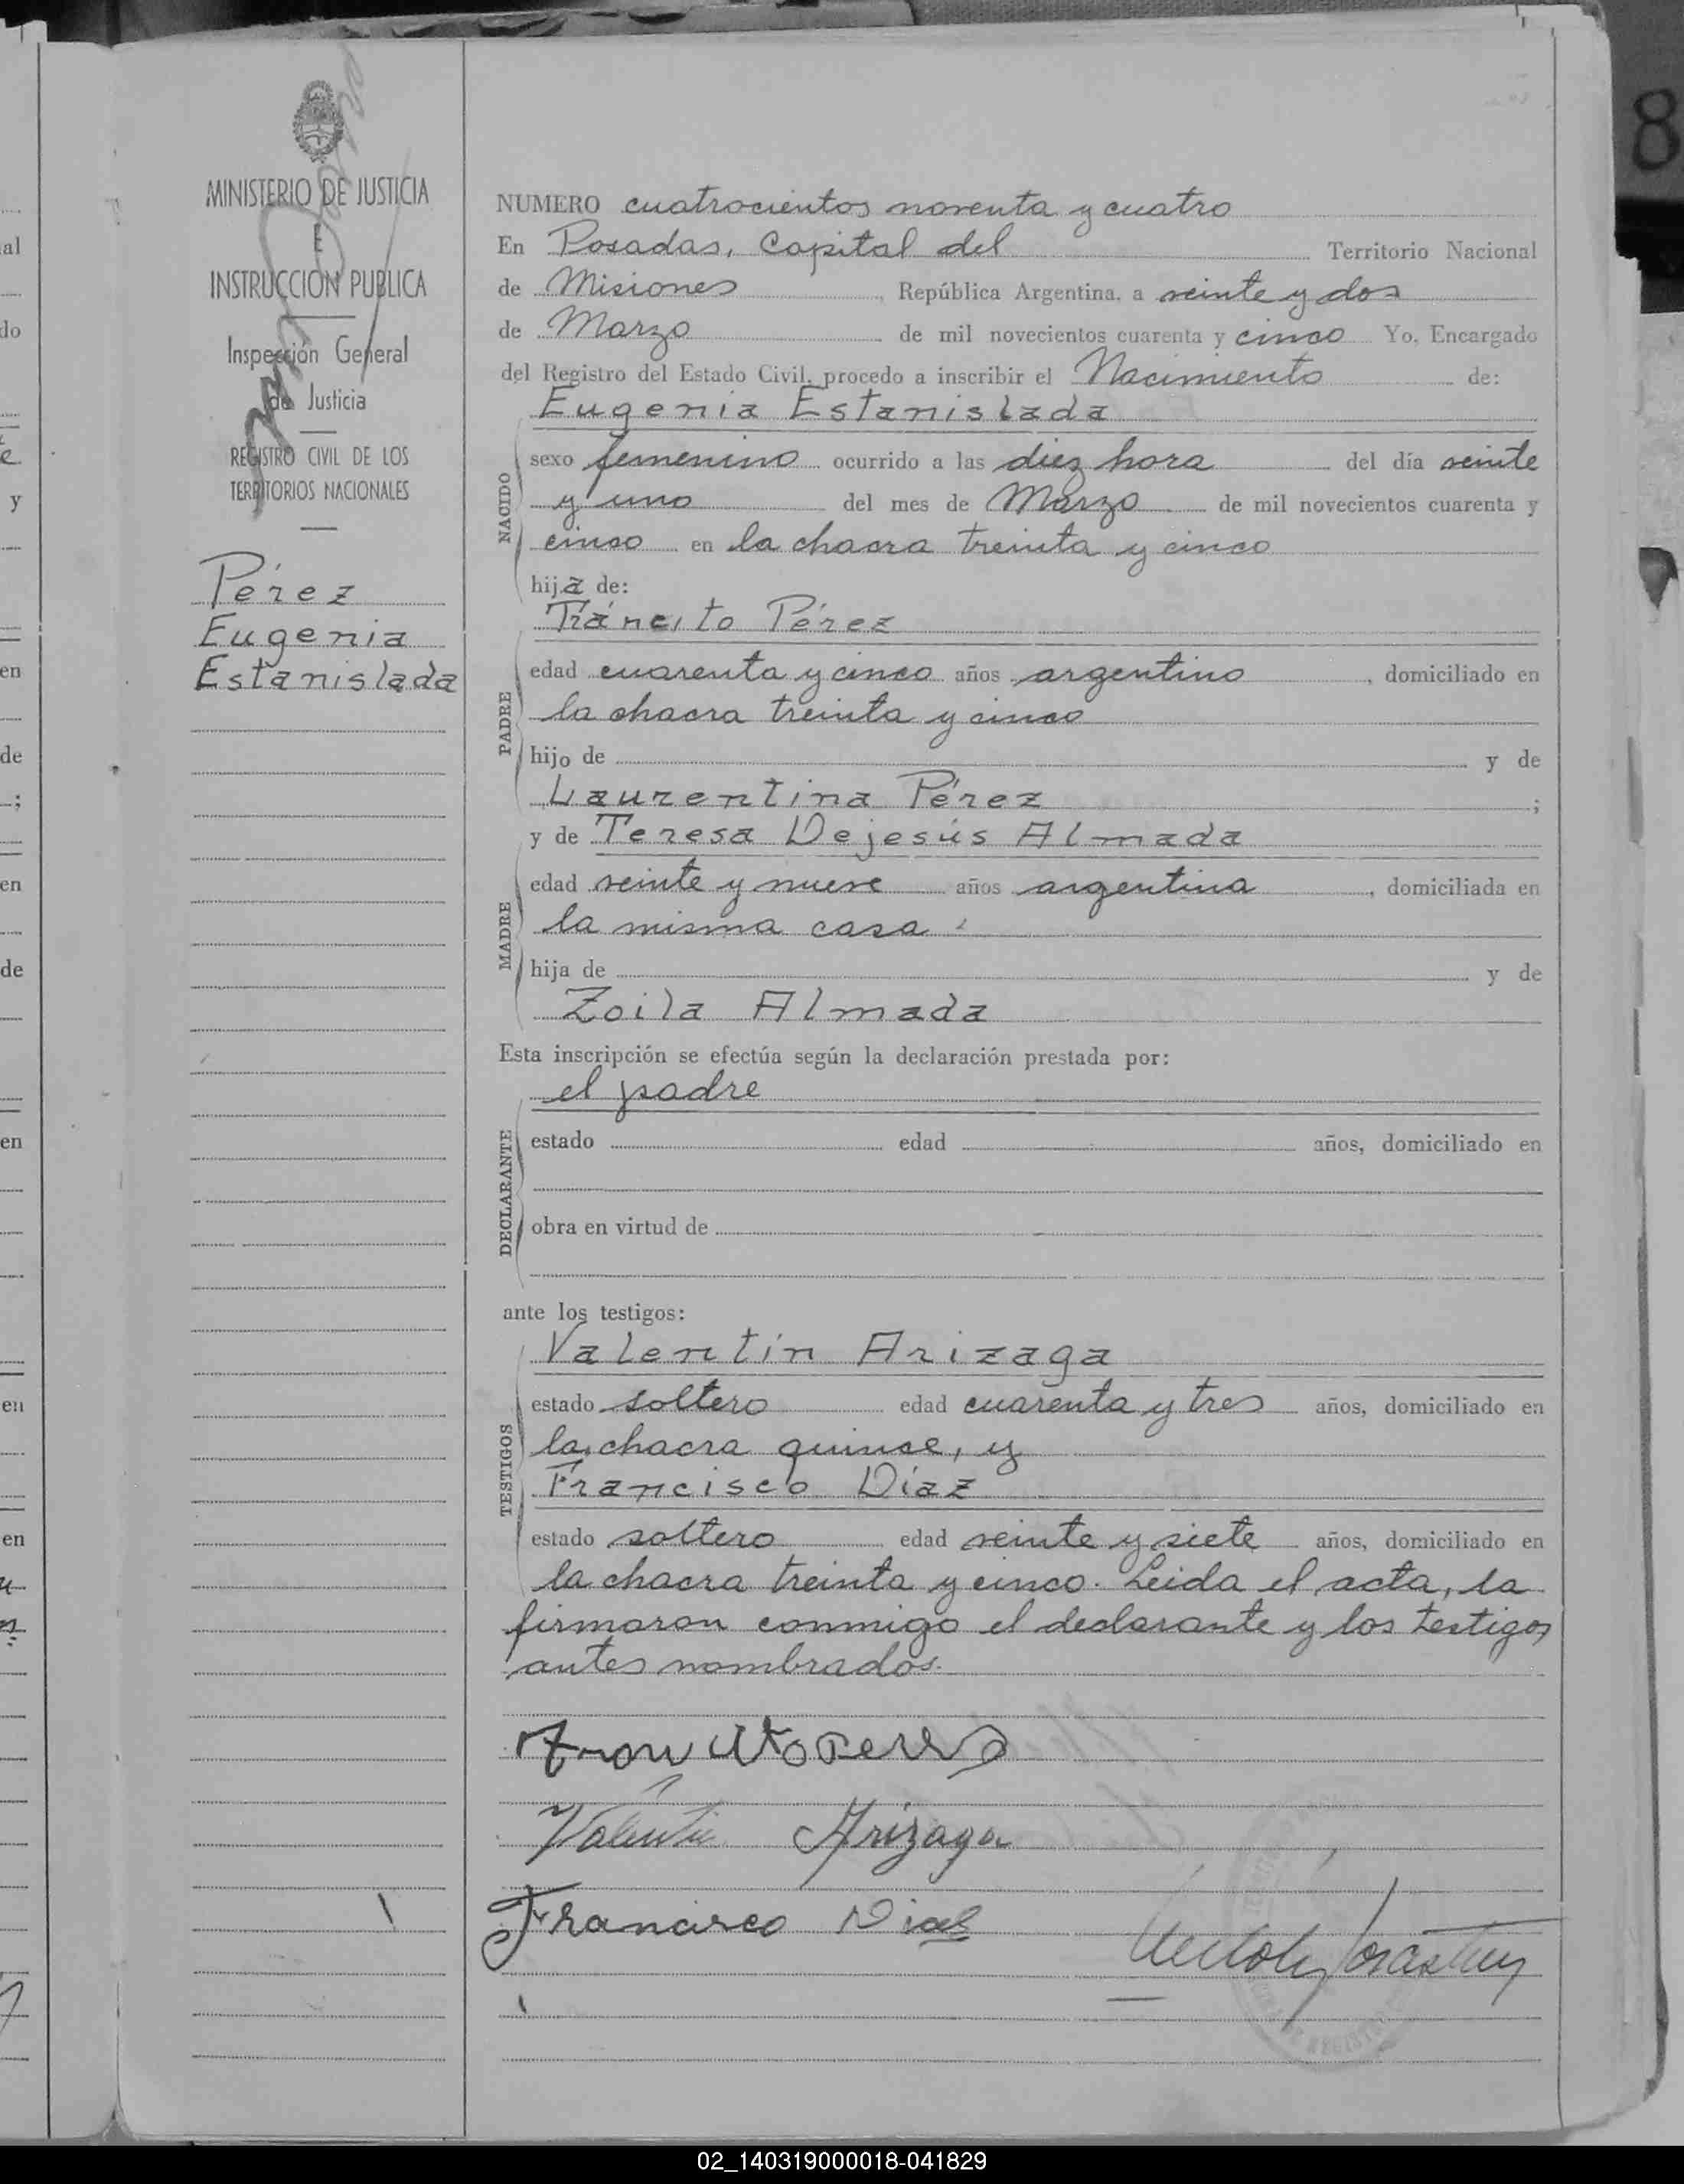 MINISTERIO DE JUSTICIA
E
INSTRUCCION PUBLICA
Inspección General
de Justicia
REGISTRO CIVIL DE LOS
TERRITORIOS NACIONALES
Pérez
Eugenia
Estanislada
NUMERO cuatrocientos noventa y cuatro
En Posadas, Capital del Territorio Nacional
de Misiones, República Argentina, a veinte y dos
de Marzo de mil novecientos cuarenta y cinco Yo, Encargado
del Registro del Estado Civil, procedo a inscribir el Nacimiento de:
Eugenia Estanislada
NACIDO
sexo femenino ocurrido a las diez hora del día veinte
y uno del mes de Marzo de mil novecientos cuarenta y
cinco en la chacra treinta y cinco
hija de:
Tráncito Pérez
PADRE
edad cuarenta y cinco años argentino, domiciliado en
la chacra treinta y cinco
hijo de y de
Laurentina Pérez ;
y de Teresa Dejesús Almada
MADRE
edad veinte y nueve años argentina, domiciliada en
la misma casa
hija de y de
Zoila Almada
Esta inscripción se efectúa según la declaración prestada por:
el padre
DECLARANTE
estado edad años, domiciliado en
obra en virtud de
ante los testigos:
Valentín Arizaga
TESTIGOS
estado soltero edad cuarenta y tres años, domiciliado en
la chacra quince, y
Francisco Díaz
estado soltero edad veinte y siete años, domiciliado en
la chacra treinta y cinco. Leida el acta, la
firmaron conmigo el declarante y los testigos
antes nombrados.
Valentin Arizaga
Francisco Dias
8
02_140319000018-041829